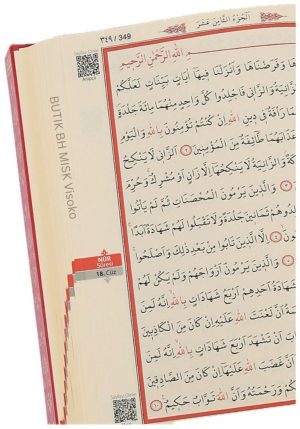 ٣٤٩ / 349
اَلْجُزْءُ الثَّامِنَ عَشَرَ
Sayfayı Dinle
Arapça
مِ اللّٰهِ الرَّحْمٰنِ الرَّحِيمِ
هَا وَفَرَضْنَاهَا وَاَنْزَلْنَا فِيهَٓا اٰيَاتٍ بَيِّنَاتٍ لَعَلَّكُمْ
اَلزَّانِيَةُ وَالزَّانِي فَاجْلِدُوا كُلَّ وَاحِدٍ مِنْهُمَا مِائَةَ جَلْدَةٍ
رَأْفَةٌ فِي دِينِ اللّٰهِ اِنْ كُنْتُمْ تُؤْمِنُونَ بِاللّٰهِ وَالْيَوْمِ
عَذَابَهُمَا طَٓائِفَةٌ مِنَ الْمُؤْمِنِينَ ﴿٢﴾ اَلزَّانِي لَا يَنْكِحُ
كَةً وَالزَّانِيَةُ لَا يَنْكِحُهَٓا اِلَّا زَانٍ اَوْ مُشْرِكٌ وَحُرِّمَ
﴿٣﴾ وَالَّذِينَ يَرْمُونَ الْمُحْصَنَاتِ ثُمَّ لَمْ يَأْتُوا
دُوهُمْ ثَمَانِينَ جَلْدَةً وَلَا تَقْبَلُوا لَهُمْ شَهَادَةً اَبَدًا
﴿٤﴾ اِلَّا الَّذِينَ تَابُوا مِنْ بَعْدِ ذٰلِكَ وَاَصْلَحُوا
﴿٥﴾ وَالَّذِينَ يَرْمُونَ اَزْوَاجَهُمْ وَلَمْ يَكُنْ لَهُمْ
شَهَادَةُ اَحَدِهِمْ اَرْبَعُ شَهَادَاتٍ بِاللّٰهِ اِنَّهُ لَمِنَ
ةُ اَنَّ لَعْنَتَ اللّٰهِ عَلَيْهِ اِنْ كَانَ مِنَ الْكَاذِبِينَ
ابَ اَنْ تَشْهَدَ اَرْبَعَ شَهَادَاتٍ بِاللّٰهِ اِنَّهُ لَمِنَ
اَنَّ غَضَبَ اللّٰهِ عَلَيْهَٓا اِنْ كَانَ مِنَ الصَّادِقِينَ
كُمْ وَرَحْمَتُهُ وَاَنَّ اللّٰهَ تَوَّابٌ حَكِيمٌ ﴿١٠﴾
BUTIK BH MISK Visoko
NÛR
Sûresi
18. Cüz
Sayfayı Dinle